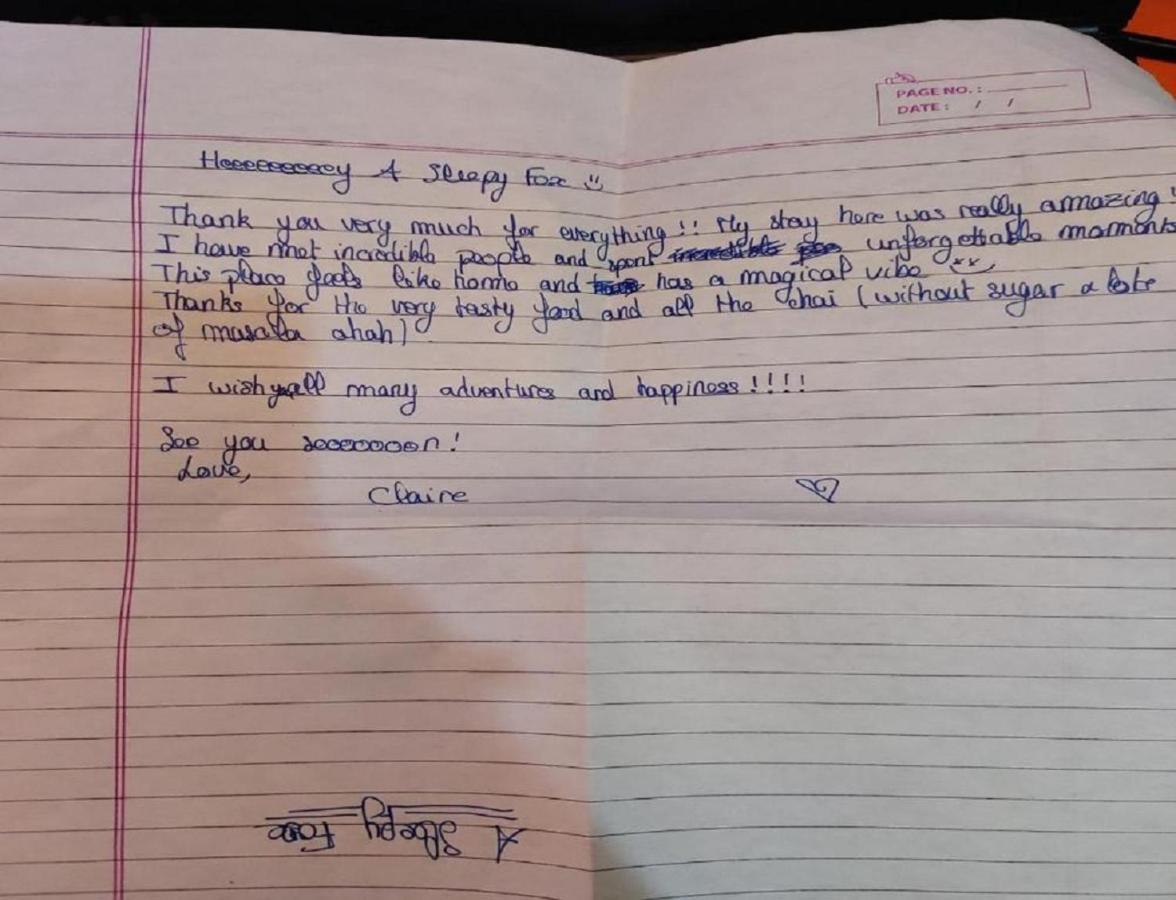 PAGE NO. :
DATE : / /
Heeeeeeeeey A Sleepy Fox
Thank you very much for everything !! My stay here was really amazing !
I have met incredible people and spent incredible unforgettable moments
This place feels like home and has a magical vibe
Thanks for the very tasty food and all the chai (without sugar a lote
of masala ahah)
I wish y'all many adventures and happiness !!!!
See you seeoooooon !
Love,
Claire
A Sleepy Fox